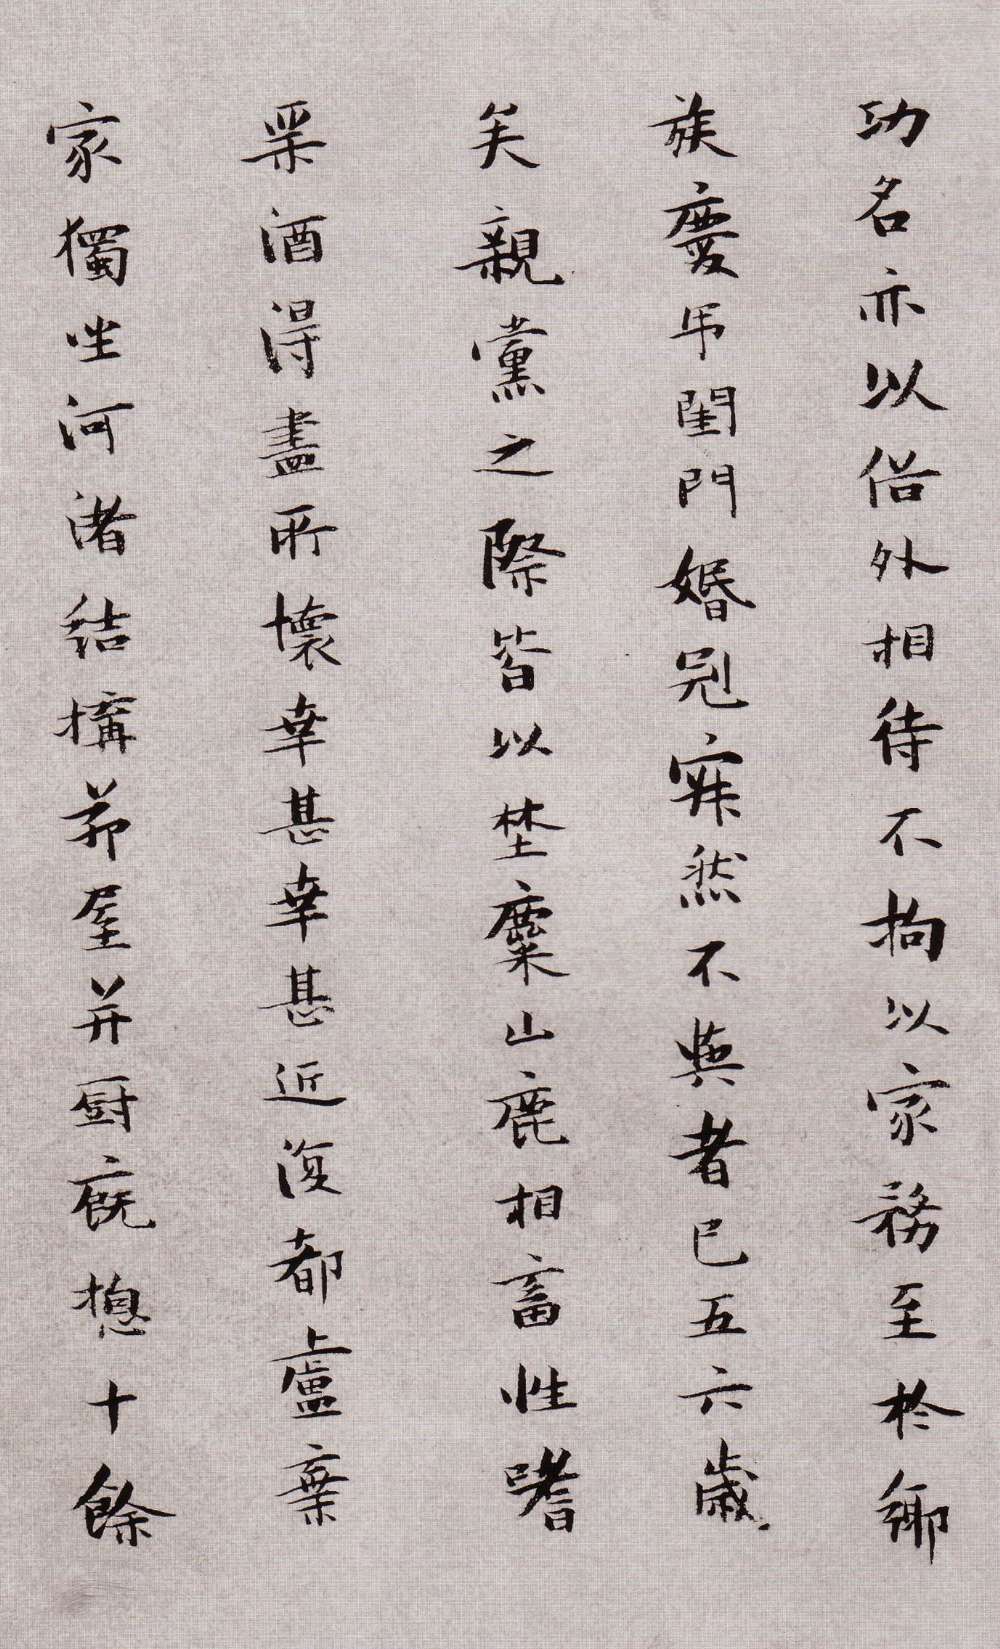 功名亦以俗外相待不拘以家務至於鄉
族慶吊閨門婚冠寂然不與者已五六歲
矣親黨之際皆以埜麋山鹿相畜性嗜
桼酒得盡所懷幸甚幸甚近復都盧棄
家獨坐河渚結構茆屋并厨廐揔十餘